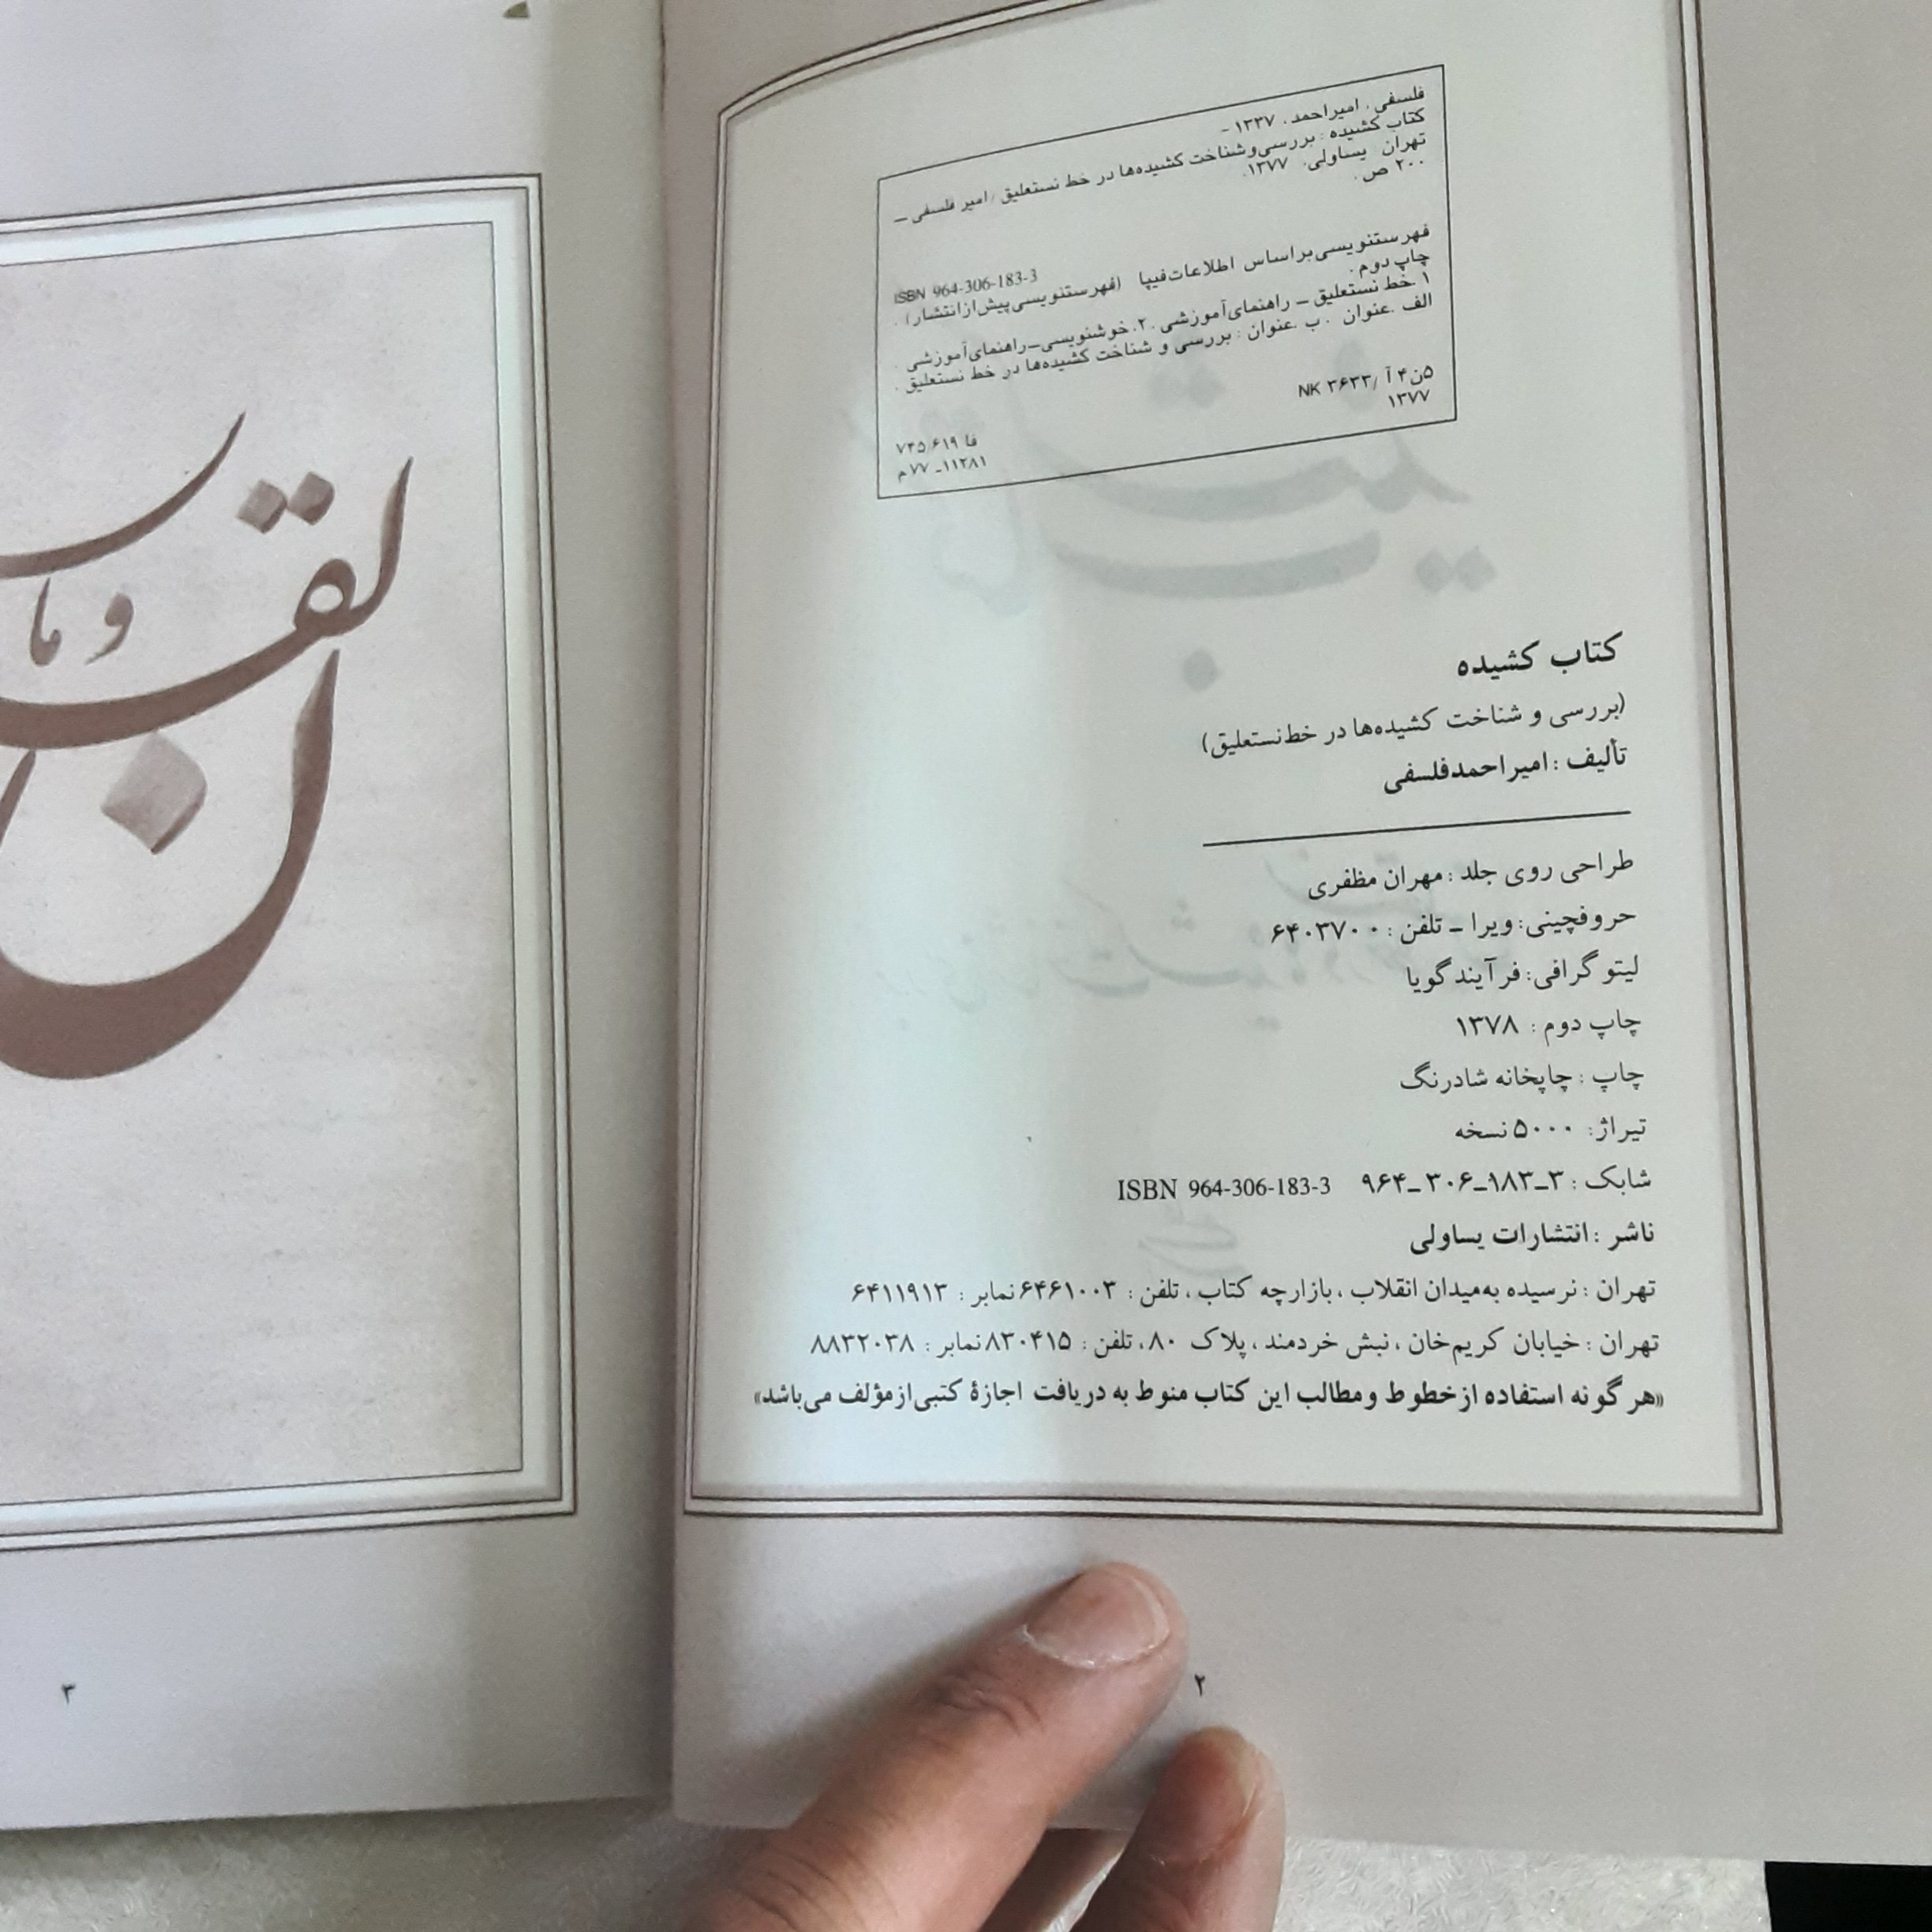 فلسفی، امیراحمد، ۱۳۳۷ -
کتاب کشیده : بررسی و شناخت کشیده‌ها در خط نستعلیق / امیر فلسفی ـ
تهران یساولی، ۱۳۷۷.
۲۰۰ ص.
ISBN 964-306-183-3
فهرستنویسی براساس اطلاعات فیپا (فهرستنویسی پیش از انتشار).
چاپ دوم.
۱. خط نستعلیق ـ راهنمای آموزشی. ۲. خوشنویسی ـ راهنمای آموزشی.
الف. عنوان. ب. عنوان : بررسی و شناخت کشیده‌ها در خط نستعلیق.
۵ن۴آ / ۳۶۳۳ NK
۱۳۷۷
۷۴۵/۶۱۹ فا
۱۱۲۸۱ـ۷۷م
کتاب کشیده
(بررسی و شناخت کشیده‌ها در خط نستعلیق)
تألیف : امیراحمد فلسفی
طراحی روی جلد : مهران مظفری
حروفچینی: ویرا ـ تلفن : ۶۴۰۳۷۰۰
لیتوگرافی: فرآیند گویا
چاپ دوم : ۱۳۷۸
چاپ : چاپخانه شادرنگ
تیراژ: ۵۰۰۰ نسخه
شابک : ۳ـ۱۸۳ـ۳۰۶ـ۹۶۴ ISBN 964-306-183-3
ناشر : انتشارات یساولی
تهران : نرسیده به‌میدان انقلاب، بازارچه کتاب، تلفن : ۶۴۶۱۰۰۳ نمابر : ۶۴۱۱۹۱۳
تهران : خیابان کریم‌خان، نبش خردمند، پلاک ۸۰، تلفن : ۸۳۰۴۱۵ نمابر : ۸۸۳۲۰۳۸
«هرگونه استفاده از خطوط و مطالب این کتاب منوط به دریافت اجازهٔ کتبی از مؤلف می‌باشد»
۲
۳